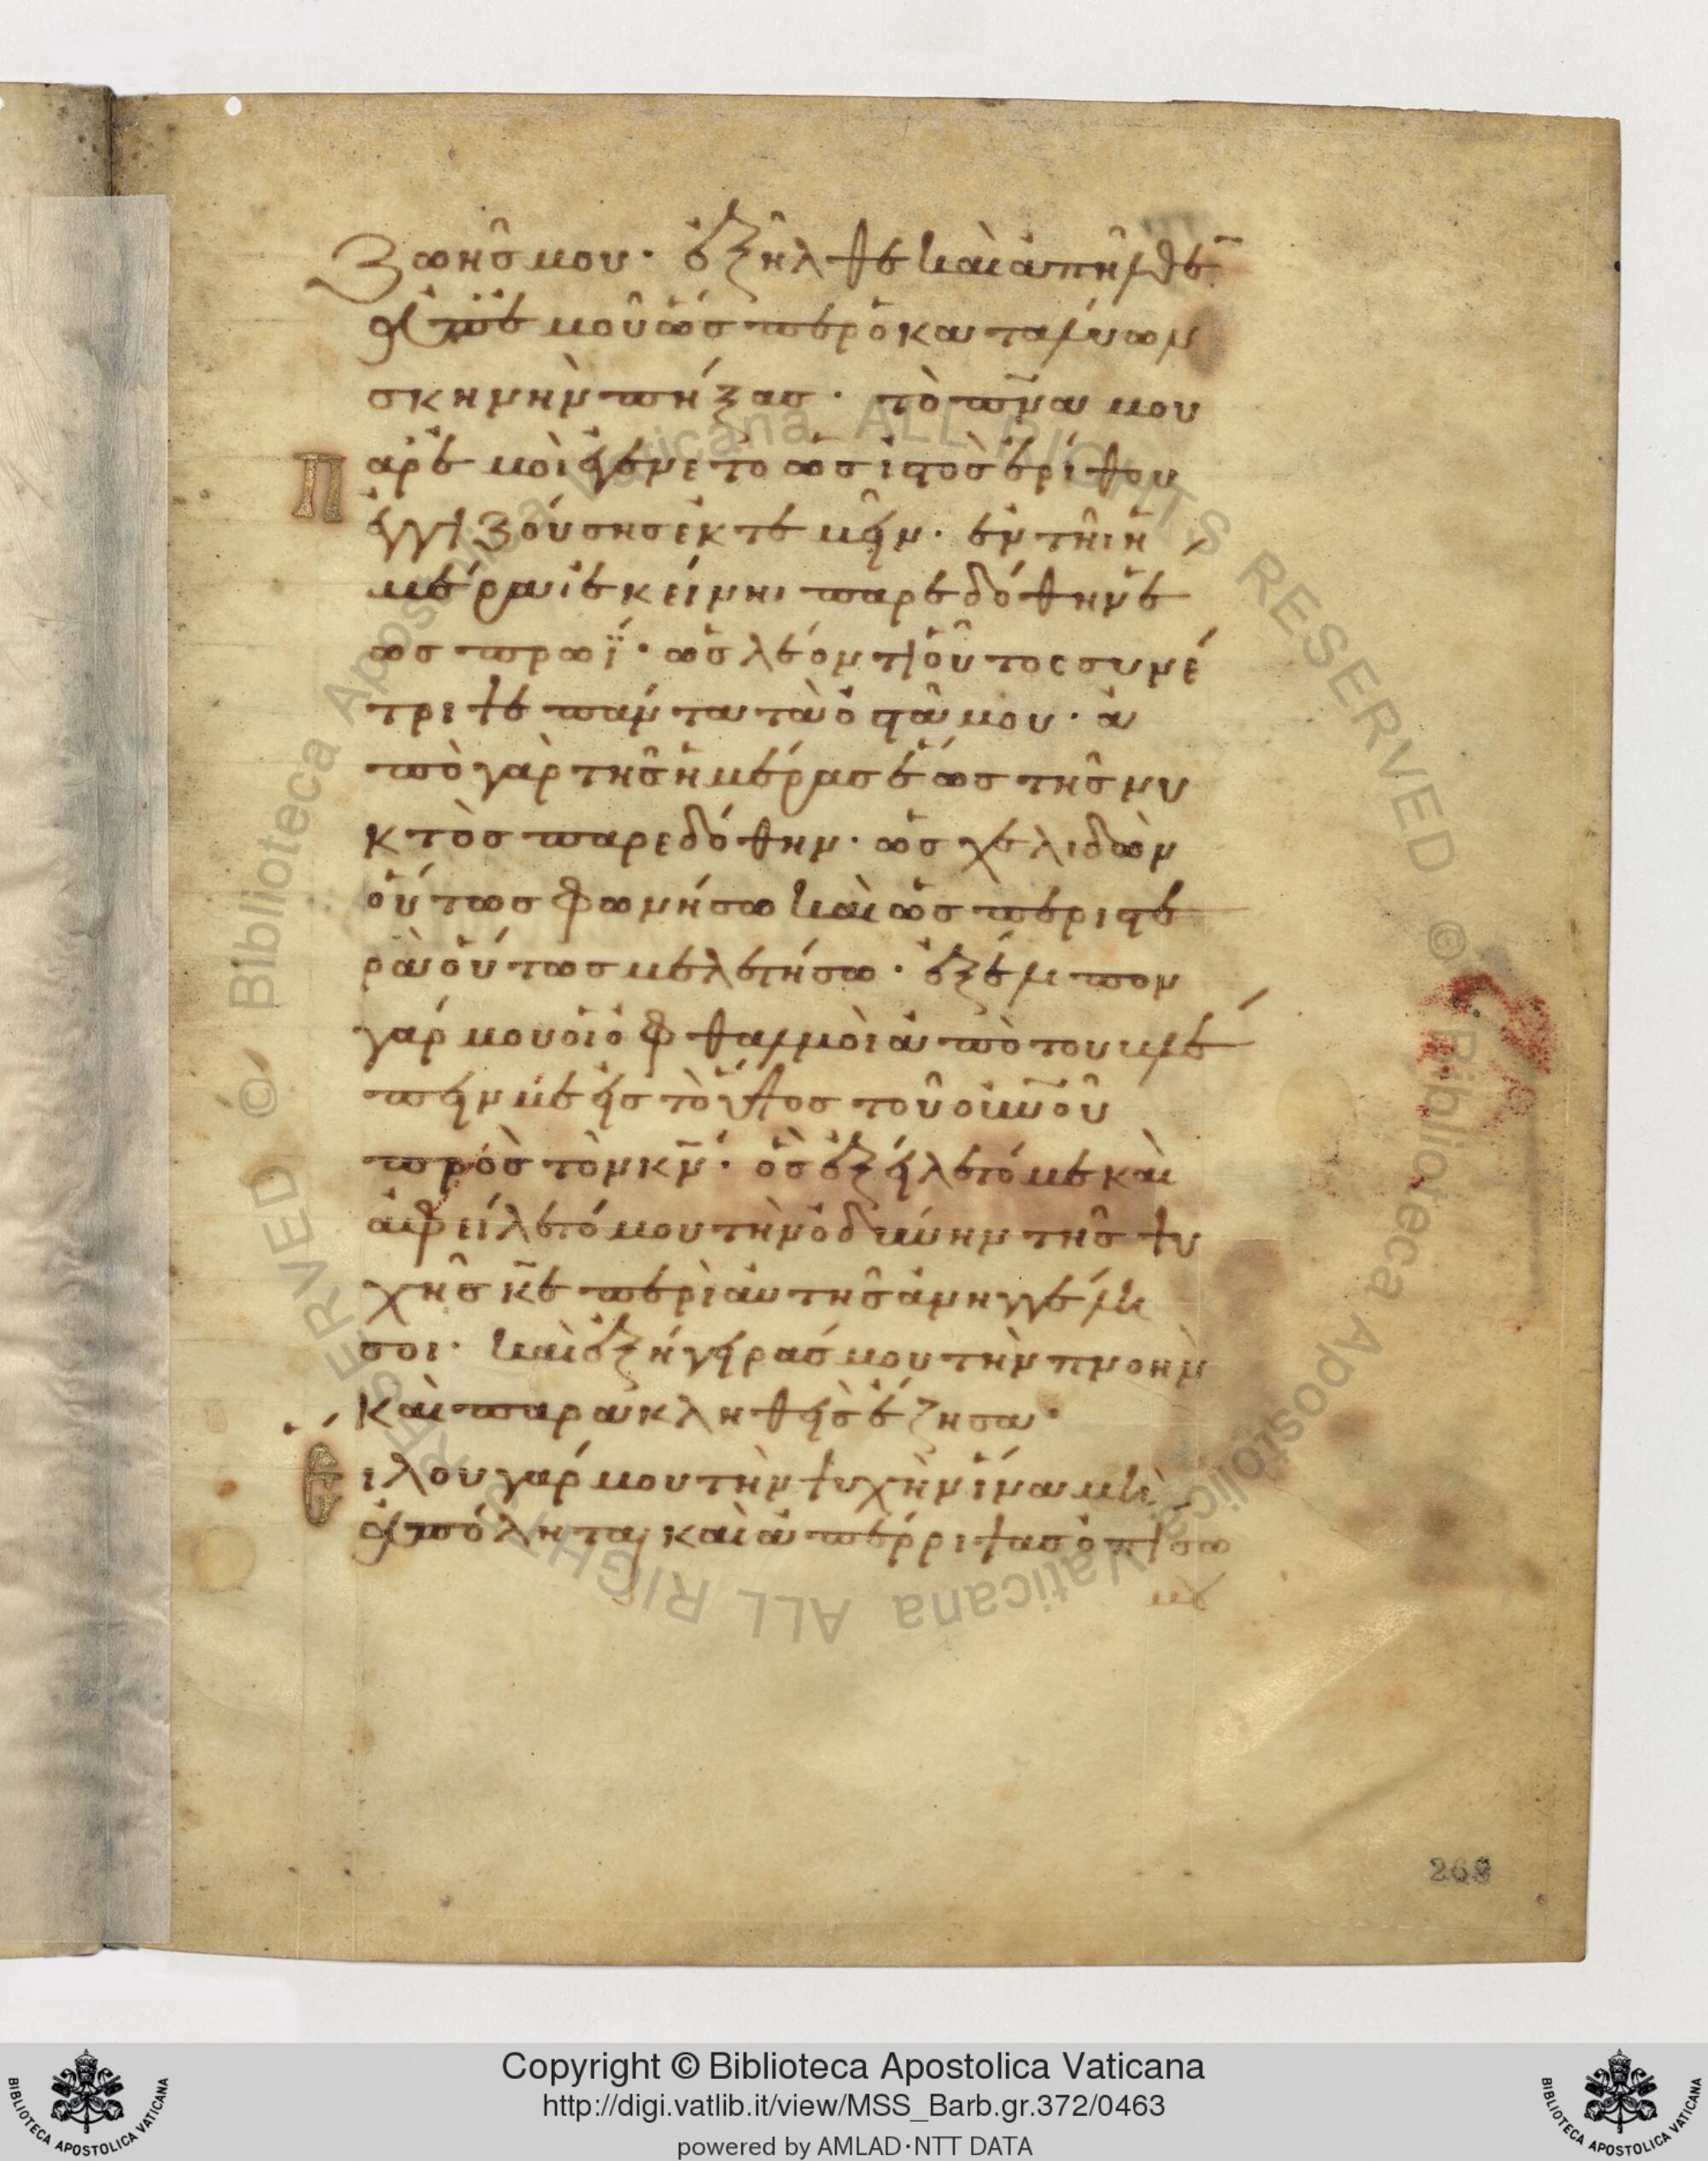 ζωῆς μου· ἐξῆλθε καὶ ἀπῆλθε̄
ἀπ' ἐμοῦ ὥσπερ ὁ καταλύων
σκηνὴν πήξας· τὸ πν̄α μου
Παρ' ἐμοὶ ἐγένετο ὡς ἱστὸς ἐρίθου
ἐγγιζούσης ἐκτεμεῖν· ἐν τῆι ἡ
μέραι ἐκείνηι παρεδόθην ἕ
ως πρωΐ· ὡς λέοντι οὗτος συνέ
τριψε πάντα τὰ ὀστᾶ μου· ἀ
πὸ γὰρ τῆς ἡμέρας ἕως τῆς νυ
κτὸς παρεδόθην· ὡς χελιδὼν
οὕτως φωνήσω καὶ ὡς περιστε
ρὰ οὕτως μελετήσω· ἐξέλιπον
γάρ μου οἱ ὀφθαλμοὶ ἀπὸ τοῦ βλέ
πειν με εἰς τὸ ὕψος τοῦ οὐνοῦ
πρὸς τὸν κν̄· ὃς ἐξείλετό με καὶ
ἀφείλετό μου τὴν ὀδύνην τῆς ψυ
χῆς κ̄ε περὶ αὐτῆς ἀνηγγέλη
σοι· καὶ ἐξήγειράς μου τὴν πνοὴν
καὶ παρακληθεὶς ἔζησα·
Εἵλου γάρ μου τὴν ψυχὴν ἵνα μὴ
ἀπόληται καὶ ἀπέρριψας ὀπίσω
268
© Biblioteca Apostolica Vaticana ALL RIGHTS RESERVED © Biblioteca Apostolica Vaticana ALL RIGHTS RESERVED
Copyright © Biblioteca Apostolica Vaticana
http://digi.vatlib.it/view/MSS_Barb.gr.372/0463
powered by AMLAD·NTT DATA
BIBLIOTECA APOSTOLICA VATICANA
BIBLIOTECA APOSTOLICA VATICANA